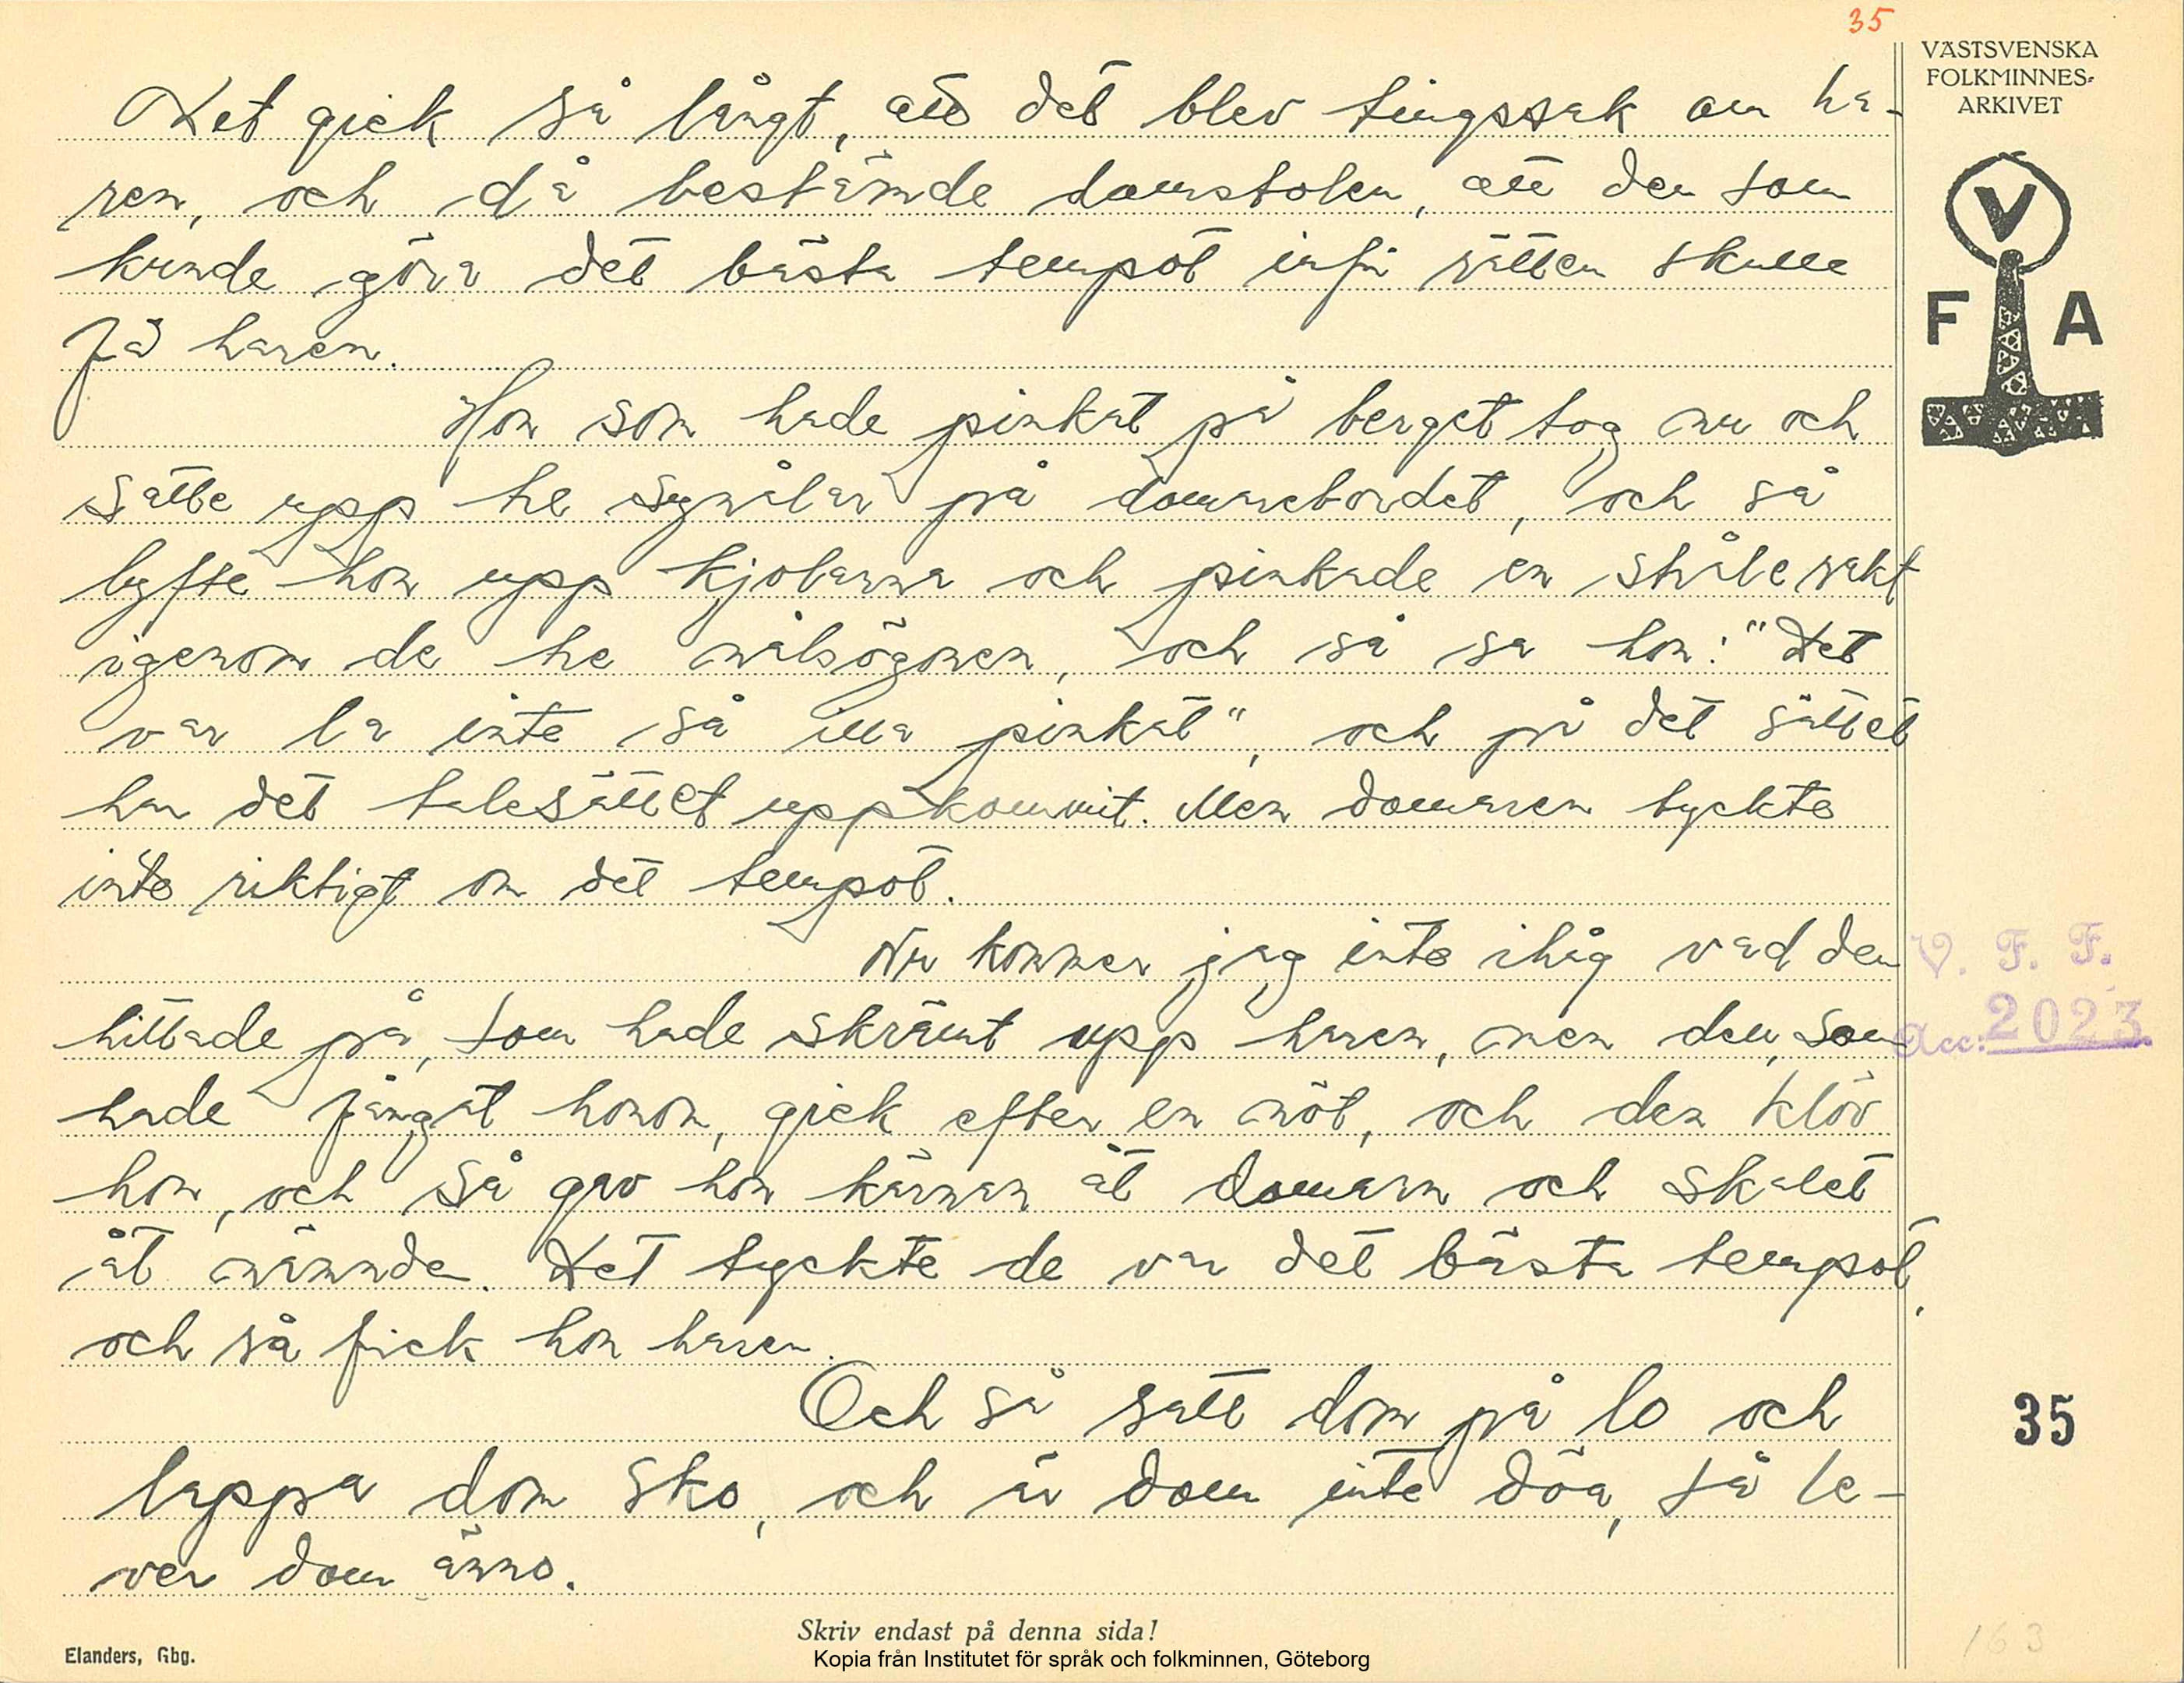 35
VÄSTSVENSKA
FOLKMINNES-
ARKIVET
V
F A
Det gick så långt, att det blev tingssak om ha-
ren, och då bestämde domstolen, att den som
kunde göra det bästa tempot inför rätten skulle
få haren.
Hon som hade pinkat på berget tog nu och
satte upp tre synålar på domarebordet, och så
lyfte hon upp kjolarna och pinkade en stråle rakt
igenom de tre nålsögonen, och så sa hon: "Det
var la inte så illa pinkat", och på det sättet
har det talesättet uppkommit. Men domaren tyckte
inte riktigt om det tempot.
Nu kommer jag inte ihåg vad den
hittade på, som hade skrämt upp haren, men den, som
hade fångat honom, gick efter en nöt, och den klöv
hon, och så gav hon kärnan åt domarn och skalet
åt nämnden. Det tyckte de var det bästa tempot,
och så fick hon haren.
Och så satt dom på lo och
lappa dom sko, och är dom inte döa, så le-
ver dom änno.
V. F. F.
Acc: 2023
35
163
Skriv endast på denna sida!
Elanders, Gbg.
Kopia från Institutet för språk och folkminnen, Göteborg